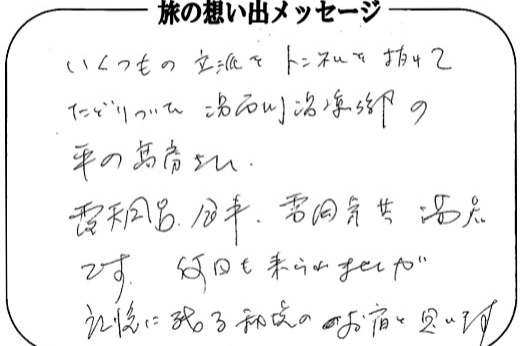 旅の想い出メッセージ
いくつもの立派なトンネルを抜けて
たどりついた 温泉郷の
平の高房さん.
露天風呂.食事.雰囲気共 満足
です. 何回も来られませんが
記憶に残る秘境のお宿と思います